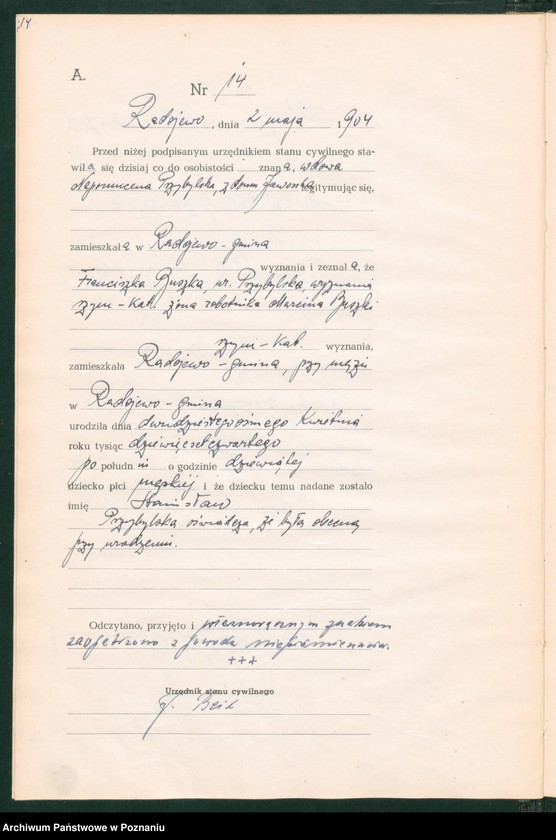 14
A.
Nr 14
Radojewo, dnia 2 maja 1904
Przed niżej podpisanym urzędnikiem stanu cywilnego sta-
wiła się dzisiaj co do osobistości znana, wdowa
Nepomucena Przybylska, z domu legitymując się,
zamieszkała w Radojewo - gmina
wyznania i zeznała, że
Franciszka Buszka, ur. Przybylska, wyznania
rzym - kat. żona robotnika Marcina Buszki
rzym - kat. wyznania,
zamieszkała Radojewo - gmina, przy mężu
w Radojewo - gmina
urodziła dnia dwudziestego ósmego kwietnia
roku tysiąc dziewięćset czwartego
po południu o godzinie dziewiątej
dziecko płci męskiej i że dziecku temu nadane zostało
imię Stanisław
Przybylska oświadcza, że była obecną
przy urodzeniu.
Odczytano, przyjęto i własnoręcznym znakiem
zaopatrzono z powodu niepiśmienności.
+++
Urzędnik stanu cywilnego
Archiwum Państwowe w Poznaniu